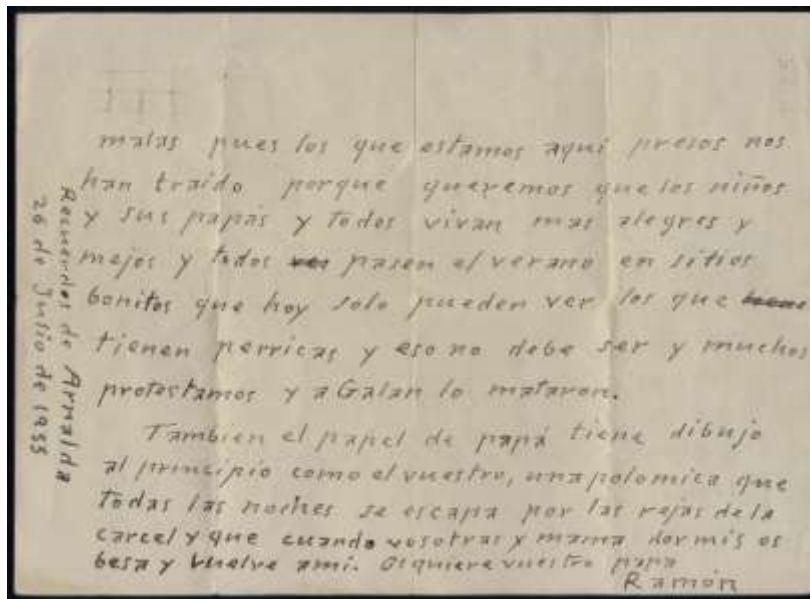 malas pues los que estamos aqui presos nos
han traido porque queremos que los niños
y sus papás y todos vivan mas alegres y
mejor y todos pasen el verano en sitios
bonitos que hoy solo pueden ver los que
tienen perricas y eso no debe ser y muchos
protestamos y a Galan lo mataron.
Tambien el papel de papá tiene dibujo
al principio como el vuestro, una polomica que
todas las noches se escapa por las rejas de la
carcel y que cuando vosotras y mama dormis os
besa y vuelve a mi. Os quiere vuestro papa
Ramón
Recuerdos de Arnalda
26 de Julio de 1955